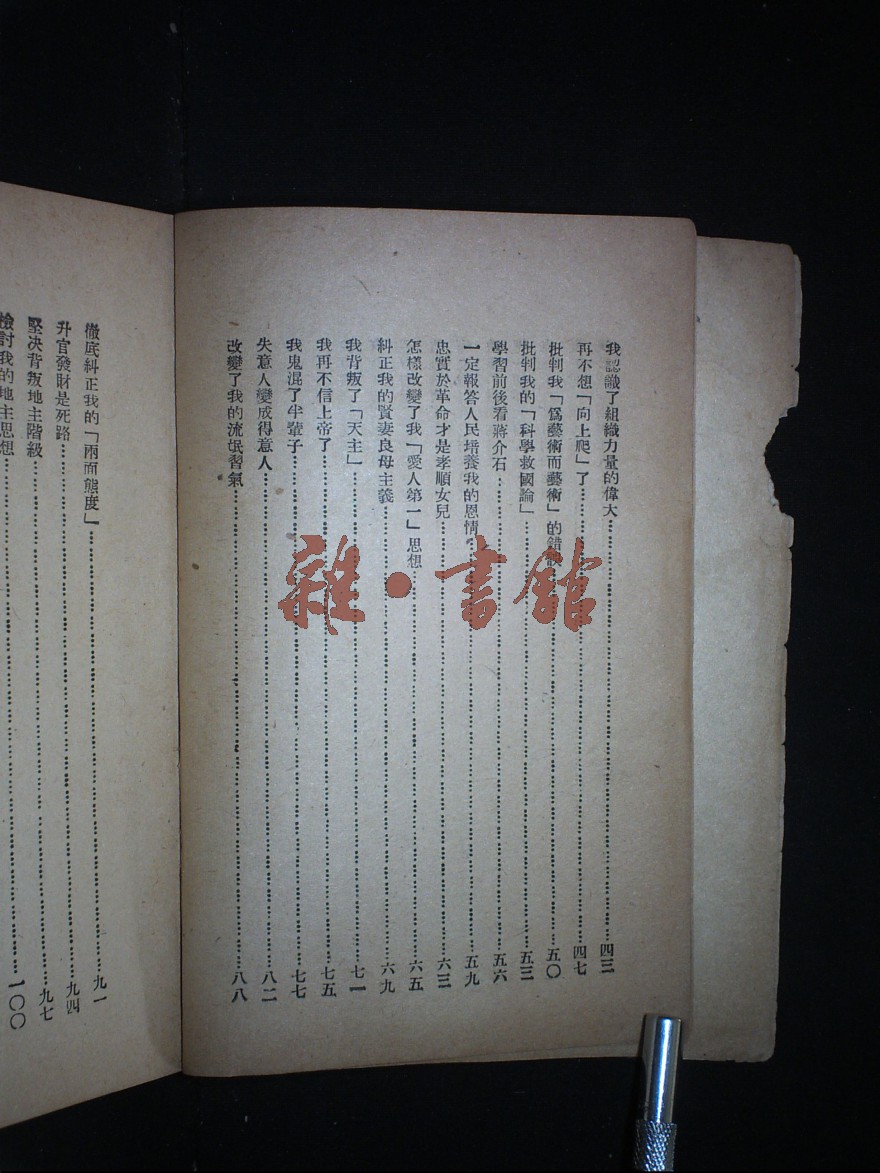 我認識了組織力量的偉大……四三
再不想「向上爬」了……四七
批判我「爲藝術而藝術」的錯誤……五〇
批判我的「科學救國論」……五三
學習前後看蔣介石……五六
一定報答人民培養我的恩情……五九
忠實於革命才是孝順女兒……六三
怎樣改變了我「愛人第一」思想……六五
糾正我的賢妻良母主義……六九
我背叛了「天主」……七一
我再不信上帝了……七五
我鬼混了半輩子……七七
失意人變成得意人……八二
改變了我的流氓習氣……八八
徹底糾正我的「兩面態度」……九一
升官發財是死路……九四
堅决背叛地主階級……九七
檢討我的地主思想……一〇〇
雜·書舘